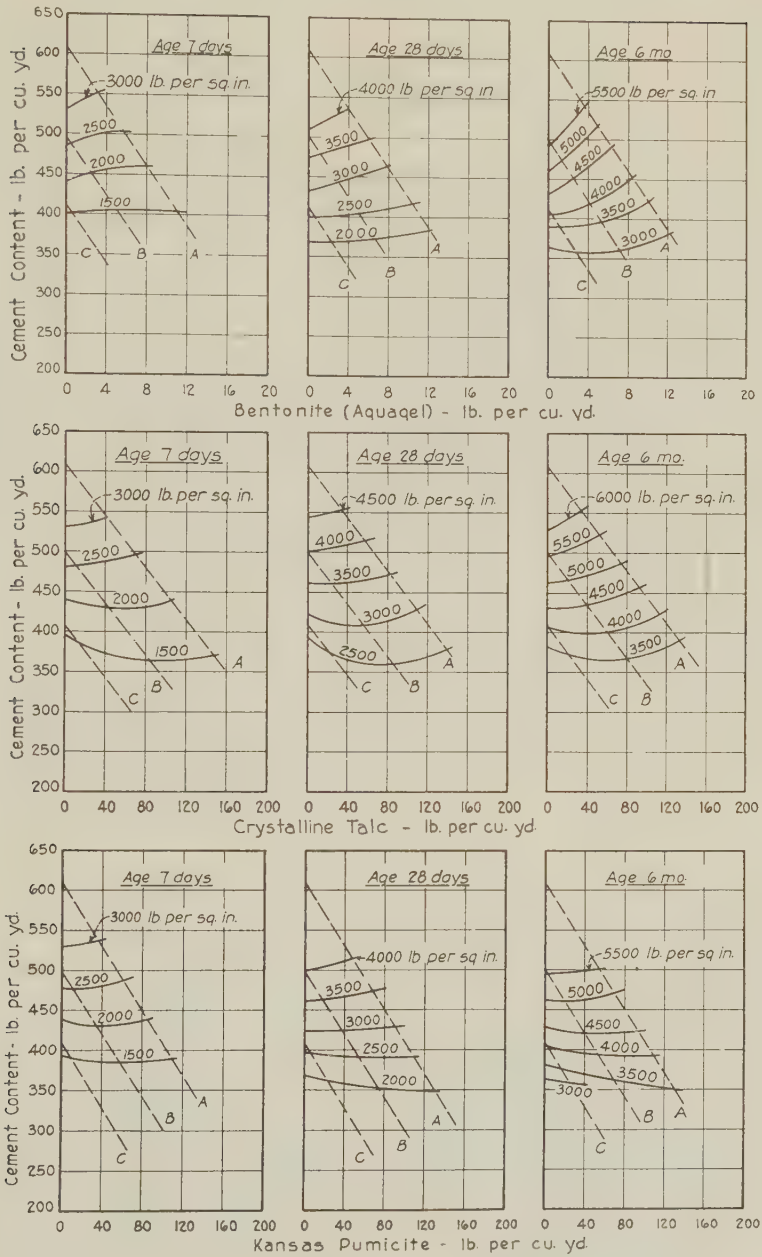 Cement Content - lb. per cu. yd.
650
600
550
500
450
400
350
300
250
200
Age 7 days
3000 lb. per sq. in.
2500
2000
1500
C
B
A
0 4 8 12 16 20
Age 28 days
4000 lb. per sq in
3500
3000
2500
2000
C
B
A
0 4 8 12 16 20
Age 6 mo
5500 lb per sq in
5000
4500
4000
3500
3000
C
B
A
0 4 8 12 16 20
Bentonite (Aquagel) - lb. per cu. yd.
Cement Content - lb. per cu. yd.
650
600
550
500
450
400
350
300
250
200
Age 7 days
3000 lb. per sq. in.
2500
2000
1500
C
B
A
0 40 80 120 160 200
Age 28 days
4500 lb. per sq. in.
4000
3500
3000
2500
C
B
A
0 40 80 120 160 200
Age 6 mo.
6000 lb. per sq. in.
5500
5000
4500
4000
3500
C
B
A
0 40 80 120 160 200
Crystalline Talc - lb. per cu. yd.
Cement Content - lb. per cu. yd.
650
600
550
500
450
400
350
300
250
200
Age 7 days
3000 lb per sq. in.
2500
2000
1500
C
B
A
0 40 80 120 160 200
Age 28 days
4000 lb per sq in.
3500
3000
2500
2000
C
B
A
0 40 80 120 160 200
Age 6 mo.
5500 lb per sq. in.
5000
4500
4000
3500
3000
C
B
A
0 40 80 120 160 200
Kansas Pumicite - lb. per cu. yd.